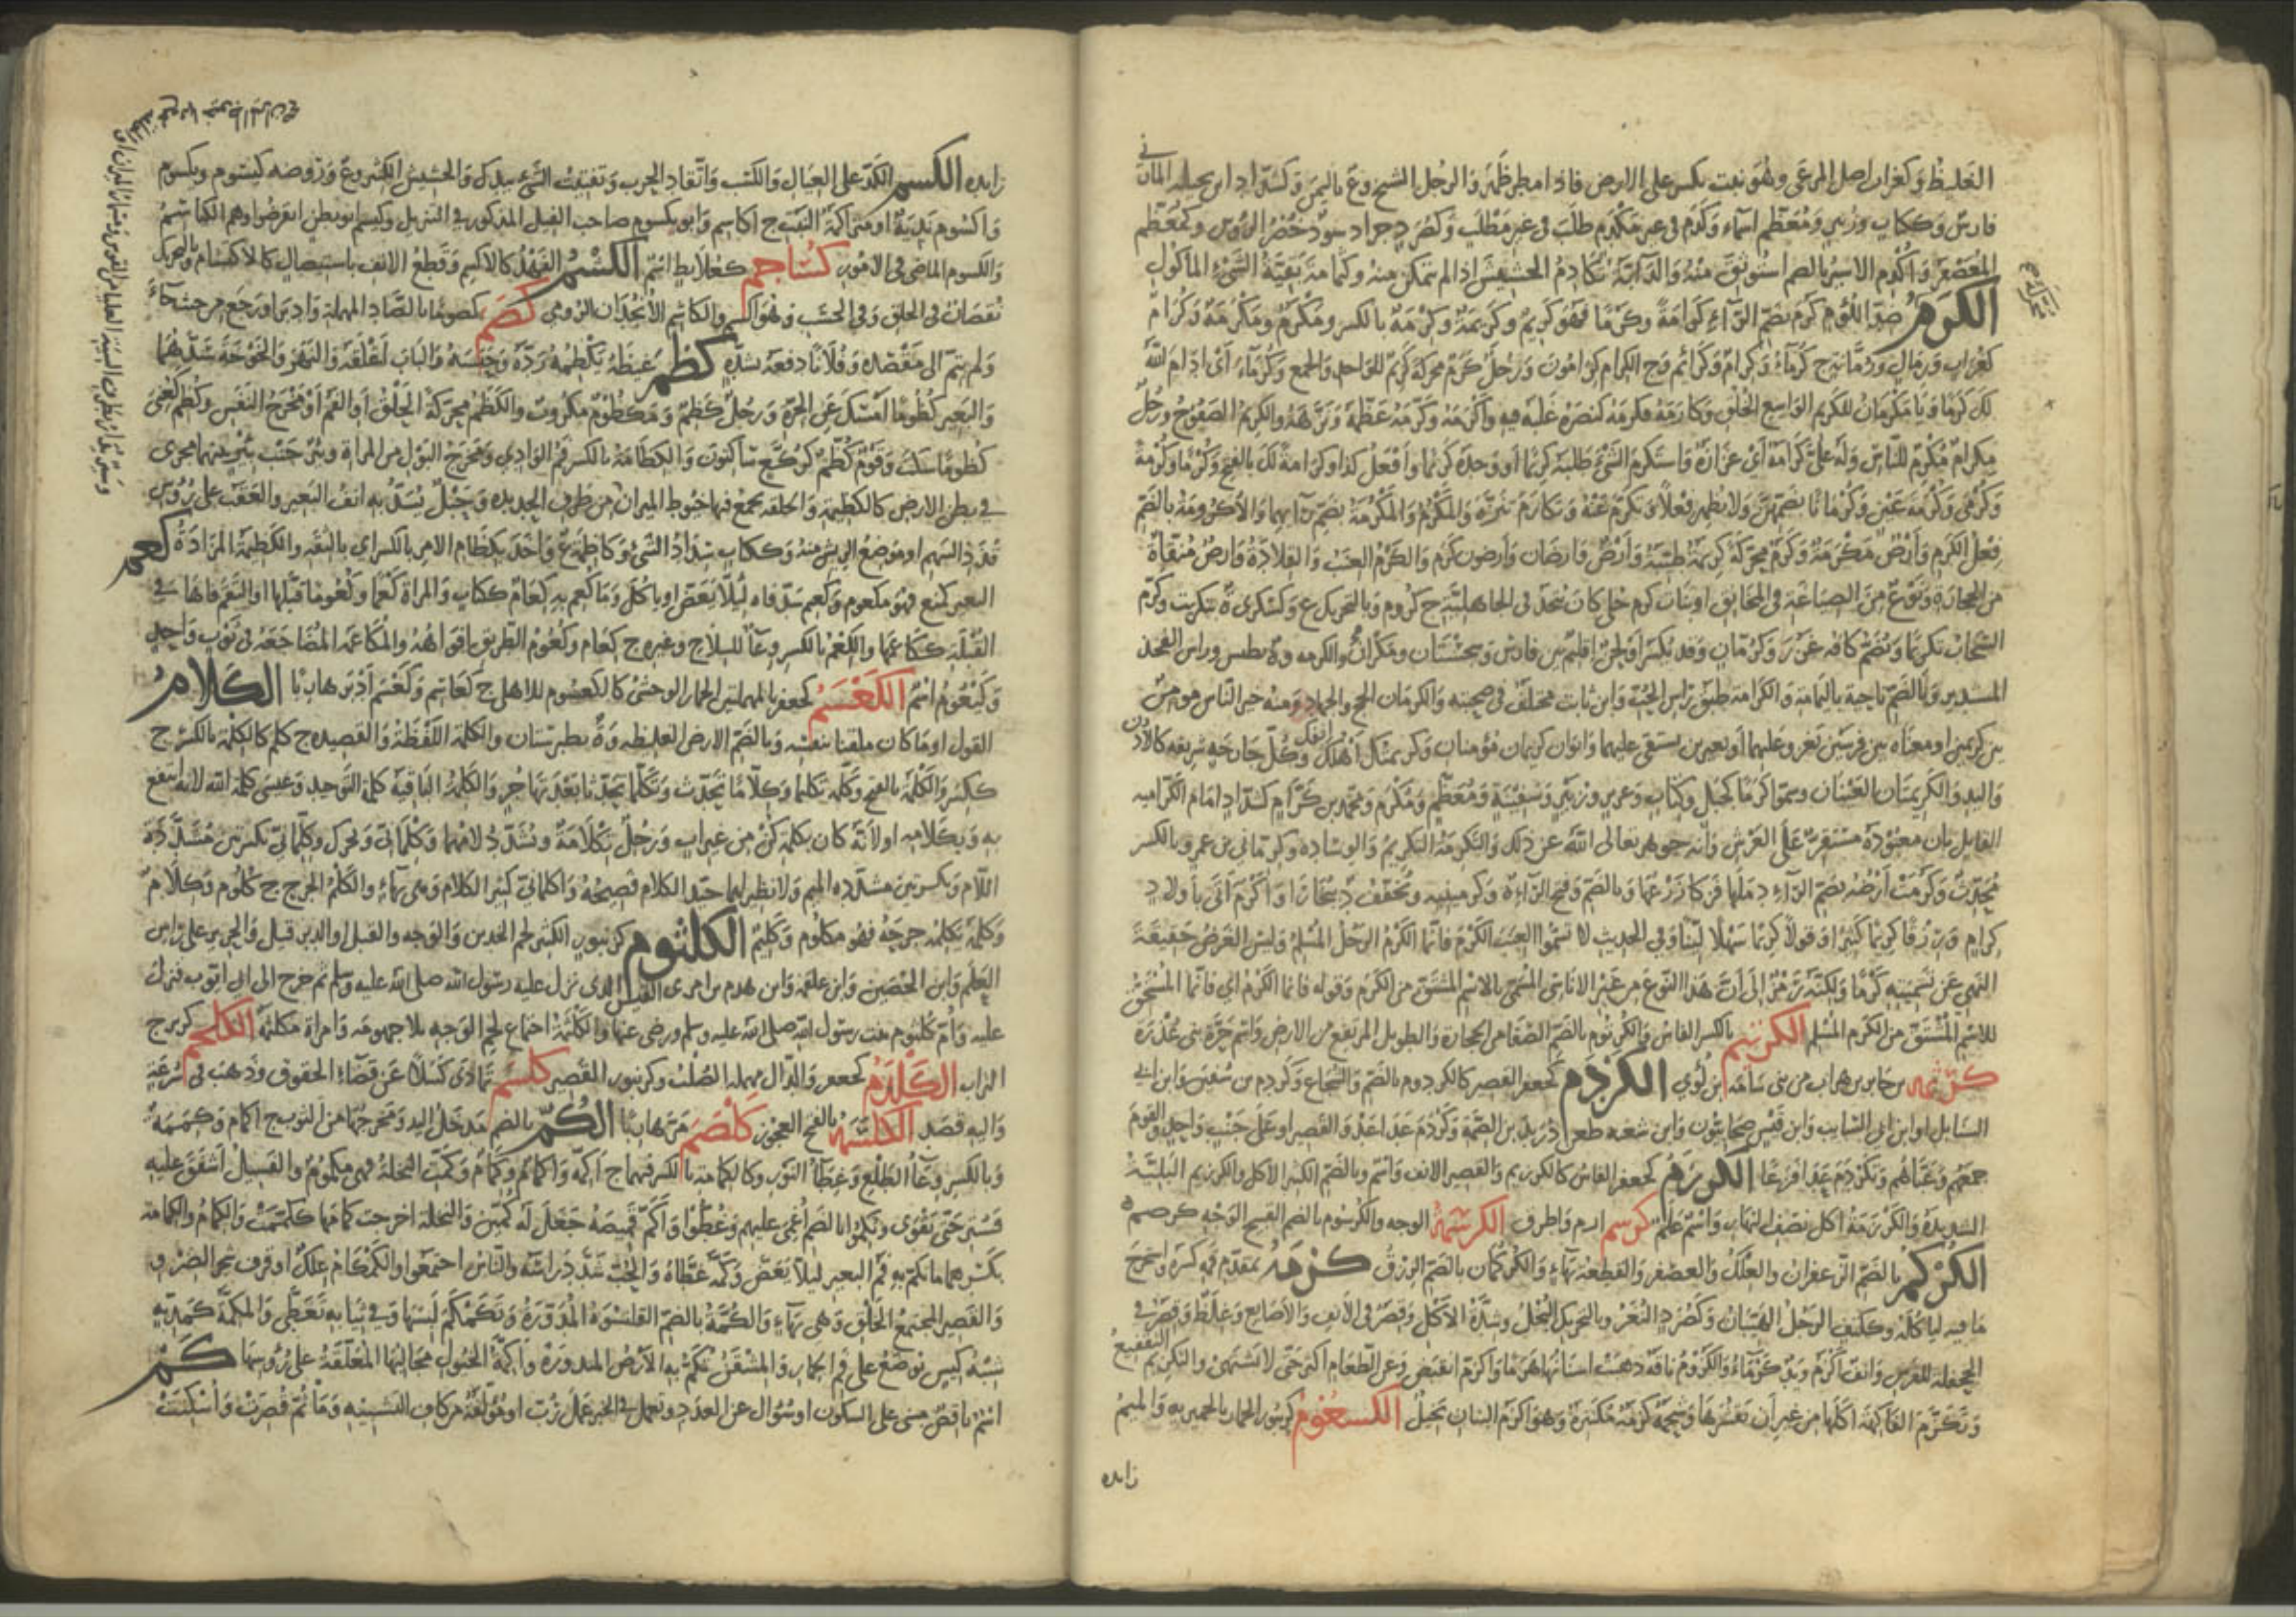 الغليظ وكغراب اصل المرعى وهو نبت يكسر على الارض فاذا مطر ظهر والرجل الشيخ وع باليمن وكشداد ابن بجيلة المازني
فارس وككتاب وزبير ومعظم اسماء وكدم في غير مكدم طلب في غير مطلب وكصرد جراد سود خضر الرؤس وكمعظم
المعضض واكدم الاسير بالضم استوثق منه والدابة تكادم الحشيش اذا لم تتمكن منه وكثمامة بقية الشئ المأكول
الكرم ضد اللؤم كرم بضم الراء كرامة وكرما فهو كريم وكريمة وكرمة بالكسر ومكرم ومكرمة وكرام
كغراب ورمان ورمانة ج كرماء وكرام وكرائم وج الكرام كرامون ورجل كرم محركة كريم للواحد والجمع وكرما اى ادام الله
لك كرما ويا مكرمان للكريم الواسع الخلق وكارمه فكرمه كنصره غلبه فيه واكرمه وكرمه عظمه ونزهه والكريم الصفوح ورجل
مكرام مكرم للناس وله على كرامة اى عزازة واستكرم الشئ طلبه كريما او وجده كريما وافعل كذا وكرامة لك بالفتح وكرما وكرمة
وكرمى وكرمة عين وكرمانا بضمهن ولا تظهر فعلا وتكرم عنه وتكارم تنزه والمكرم والمكرمة بضم رائهما والاكرومة بالضم
فعل الكرم وارض مكرمة وكرم محركة كريمة طيبة وارض وارضان وارضون كرم والكرم العنب والقلادة وارض منقاة
من الحجارة ونوع من الصياغة في المخانق او بنات كرم حلى كان يتخذ في الجاهلية ج كروم وبالتحريك ع وكسكرى ة بتكريت وكرم
السحاب تكريما وتضم كافه غزر وكرمان وقد يكسر او لحن اقليم بين فارس وسجستان ومكران والكرمة ة بطبس وراس الفخذ
المستدير وبالضم ناحية باليمامة والكرامة طبق راس الحب وابن ثابت مختلف في صحبته والكرمان الحج والجهاد ومنه خير الناس مومن
بين كريمين او معناه بين فرسين يغزو عليهما او بعيرين يستقى عليهما وابوان كريمان مؤمنان وكريمتك انفك وكل جارحة شريفة كالاذن
واليد والكريمتان العينان وسموا كرما كجبل وكتاب وعزيز وزبير وسفينة ومعظم ومكرم ومحمد بن كرام كشداد امام الكرامية
القائل بان معبوده مستقر على العرش وانه جوهر تعالى الله عن ذلك والتكرمة التكريم والوسادة وكرماني بن عمرو بالكسر
محدث وكرمت ارضه بضم الراء دملها فزكا زرعها وبالضم وفتح الراء ة وكرمينية وتخفف د ببخارا او اكرم اتى باولاد
كرام ورزقا كريما كثيرا وقولا كريما سهلا لينا وفي الحديث لا تسموا العنب الكرم فانما الكرم الرجل المسلم وليس الغرض حقيقة
النهى عن تسميته كرما ولكنه رمز الى ان هذا النوع من غير الاناسى المسمى بالاسم المشتق من الكرم وقوله فانما الكرم اى فانما المستحق
للاسم المشتق من الكرم المسلم الكرتيم بالكسر الفاس والكرتوم بالضم الصفا من الحجارة والطويل المرتفع من الارض واسم حرة بنى عذرة
كرثمة بن جابر بن هراب من بنى سامة ابن لؤي الكردم كجعفر القصير كالكردوم بالضم والشجاع وكردم بن سفين وابن ابي
السابل او ابن ابي السايب وابن قيس صحابيون وابن شعبة طعن دريد بن الصمة وكردم عدا عدو القصير او على جنب واحد والقوم
جمعهم وعباهم وتكردم عدا فزعا الكرزم كجعفر الفاس كالكرزيم والقصير الانف واسم وبالضم الكثير الاكل والكرزيم البلية
الشديدة والكرزمة اكل نصف النهار واسم علم كرسم ازم واطرق الكرشمة الوجه والكرشوم بالضم القبيح الوجه كرصم
الكركم بالضم الزعفران والعلك والعصفر والقطعة بهاء والكركمان بالضم الرزق كزمه بمقدم فيه كسره واستخرج
ما فيه لياكله وككتف الرجل الهيبان وكصرد النغر وبالتحريك البخل وشدة الاكل وقصر في الانف والاصابع وغلظ وقصر في
الجحفلة للفرس وانف اكزم ويد كزماء والكزوم ناقة ذهبت اسنانها هرما واكزم انقبض وعن الطعام اكثر حتى لا تشتهى والتكزيم التقفيع
وتكزم الفاكهة اكلها من غير ان تقشرها وشحمة كزمة مكتنزة وهو اكزم البنان بخيل الكسعوم كزنبور الحمار بالحميرية والميم
زايده
زايدة الكسم الكد على العيال والكسب وايقاد الحرب وتفتيت الشئ بيدك والحشيش الكثير وع وروضة كيسوم ويكسوم
واكسوم ندية او متراكمة النبت ج اكاسم وابو يكسوم صاحب الفيل المذكور في التنزيل وكيسم ابو بطن انقرضوا وهم الكياسم
والكسوم الماضى في الامور كشاجم كعلابط اسم الكشم الفهد كالاكشم وقطع الانف باستيصال كالاكتشام وبالتحريك
نقصان في الخلق وفي الحسب وهو اكشم والكاشم الانجذان الرومي كصم كصوما بالصاد المهملة وادبر او رجع من حيث جاء
ولم يتم الى مقصده وفلانا دفعه بشدة كظم غيظه يكظمه رده وحبسه والباب اغلقه والنهر والخوخة سدهما
والبعير كظوما امسك عن الجرة ورجل كظيم ومكظوم مكروب والكظم محركة الحلق او الفم او مخرج النفس وكظم كعنى
كظوما سكت وقوم كظم كركع ساكتون والكظامة بالكسر فم الوادي ومخرج البول من المراة وبئر جنب بئر بينهما مجرى
في بطن الارض كالكظيمة والحلقة تجمع فيها خيوط الميزان من طرف الحديدة وحبل يشد به انف البعير والعقب على رؤس
قذذ السهم او موضع الريش منه وككتاب سداد الشئ وكاظمة ع واخذ بكظام الامر بالكسر اي بالثقة والكظيمة المزادة كعم
البعير كمنع فهو مكعوم وكعيم شد فاه ليلا يعض او ياكل وما كعم به كعام ككتاب والمراة كعما وكعوما قبلها او التقم فاها في
القبلة ككاعمها والكعم بالكسر وعاء للسلاح وغيره ج كعام وكعوم الطريق افواهه والمكاعمة المضاجعة في ثوب واحد
وكيعوم اسم الكعسم كجعفر بالمهملتين الحمار الوحشى كالكعسوم للاهلى ج كعاسم وكعسم ادبر هاربا الكلام
القول او ما كان مكتفيا بنفسه وبالضم الارض الغليظة وة بطبرستان والكلمة اللفظة والقصيدة ج كلم كالكلمة بالكسر ج
ككسر والكلمة بالفتح وكلمه تكليما وكلاما تحدث وتكلما تحدثا بعد تهاجر والكلمة الباقية كلمة التوحيد وعيسى كلمة الله لانه انتفع
به وبكلامه او لانه كان بكلمة كن من غير اب ورجل تكلامة وتشدد لامهما وكلماني وتحرك وكلماني بكسرتين مشددة
اللام وبكسرتين مشددة الميم ولا نظير لهما جيد الكلام فصيحه واكلماني كثير الكلام وهى بهاء والكلم الجرح ج كلوم وكلام
وكلمه يكلمه جرحه فهو مكلوم وكليم الكلثوم كزنبور الكثير لحم الخدين والوجه والفيل او الزندفيل والحرير على راس
العلم وابن الحصين وابن علقمة وابن هدم بن امرئ القيس الذى نزل عليه رسول الله صلى الله عليه وسلم ثم خرج الى ابي ايوب فنزل
عليه وام كلثوم بنت رسول الله صلى الله عليه وسلم ورضى عنها والكلثمة اجتماع لحم الوجه بلا جهومة وامراة مكلثمة الكلحم كزبرج
التراب الكلدم كجعفر والدال مهملة الصلب وكزنبور القصير كلسم تمادى كسلا عن قضاء الحقوق وذهب في سرعة
واليه قصد الكلشمة بالفتح العجوز كلصم فر هاربا الكم بالضم مدخل اليد ومخرجها من الثوب ج اكمام وكممة
وبالكسر وعاء الطلع وغطاء النور وكالكمامة بالكسر فيهما ج اكمة واكمام وكمام وكمت النخلة فهى مكموم والفسيل اشفق عليه
فستر حتى تقوى وتكموا بالضم اغمى عليهم وغطوا واكم قميصه جعل له كمين والنخلة اخرجت كمامها ككممت والكمام والكمامة
بكسرهما ما يكم به فم البعير ليلا يعض وكمه غطاه والحب شد راسه والناس اجتمعوا والكمكام علك او قرف شجر الضرو
والقصير المجتمع الخلق وهى بهاء والكمة بالضم القلنسوة المدورة وتكمكم لبسها وفي ثيابه تغطى والمكمة كمذبة
شبه كيس يوضع على فم الحمار والمشقن تكم به الارض المبذورة واكمة الخيول مخاليها المعلقة على رؤسها كم
اسم ناقص مبنى على السكون او سؤال عن العدد وتعمل في الخبر عمل رب او مؤلفة من كاف التشبيه وما ثم قصرت واسكنت